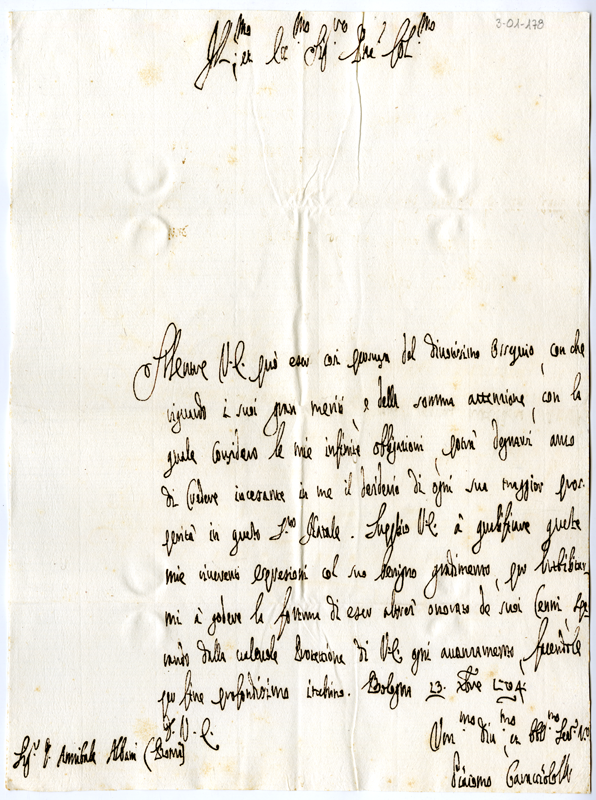 3-01-179
Ill.mo et Ecc.mo Sig.re Pne Col.mo
Mentre V.E. può esser così persuasa del divotissimo ossequio, con che
riguardo i suoi gran meriti, e della somma attenzione, con la
quale considero le mie infinite obligazioni, potrà degnarsi anco
di credere incessante in me il desiderio di ogni sua maggior pros-
perità in questo S.mo Natale. Supplico V.E. à giustificare queste
mie riverenti espressioni col suo benigno gradimento, per habilitar-
mi à godere la fortuna di esser altresì onorato de suoi Cenni, spe-
rando dalla Protezione di V.E. ogni avanzamento, facendole
per fine profondissimo inchino. Bologna 23. Xbre 1704
D. V. E.
Um.mo Div.mo et Obb.mo Ser.re
Sig.r D. Annibale Albani (Roma)
Giacomo